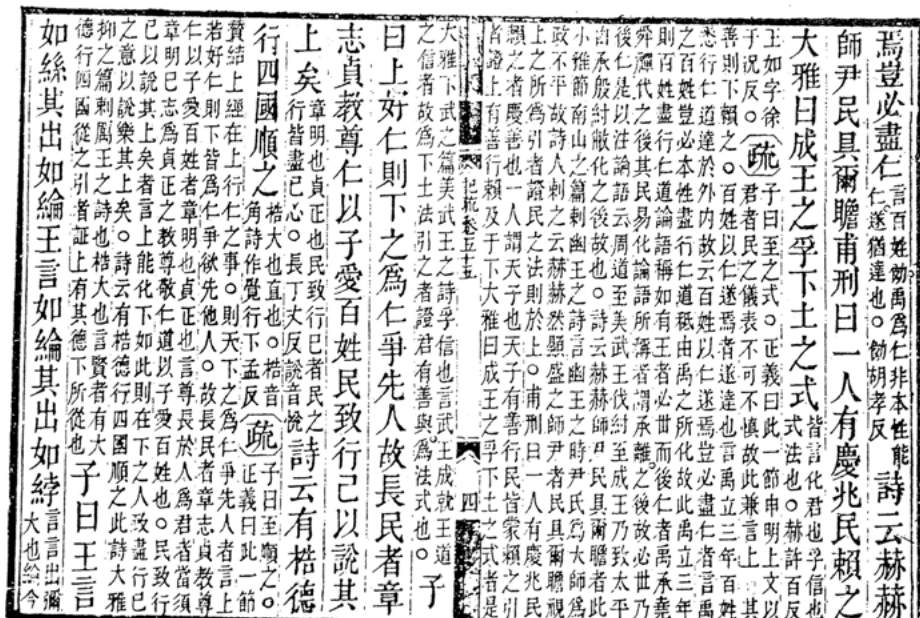 焉豈必盡仁言百姓効禹爲仁非本性能仁遂猶達也。効胡孝反詩云赫赫
師尹民具爾瞻甫刑曰一人有慶兆民賴之
大雅曰成王之孚下土之式皆言化君也孚信也式法也。赫許百反
王如字徐于況反。疏子曰至之式。正義曰此一節申明上文以君者民之儀表不可不慎故此兼言上其
善則下賴之。百姓以仁遂焉者遂達也言禹立三年百姓
悉行仁道達於外内故云百姓以仁遂焉豈必盡仁者言禹
之百姓豈必本性盡行仁道秪由禹之所化故此禹立三年
則百姓盡行仁道論語稱如有王者必世而後仁者禹承堯
舜禪代之後其民易化論語所稱者謂承離之後故必世乃
後仁是以注論語云周道至美武王伐紂至成王乃致太平
由承殷紂敝化之後故也。詩云赫赫師尹民具爾瞻者此
小雅節南山之篇刺幽王之詩言幽王之時尹氏爲大師爲
政不平故詩人刺之云赫赫然顯盛之師尹者民具爾瞻視
上之所爲引者證民之法則於上。甫刑曰一人有慶兆民
賴之者慶善也一人謂天子也天子有善行民皆蒙賴之引
者證上有善行賴及于下大雅曰成王之孚下土之式者是
記疏卷五十五 四
大雅下武之篇美武王之詩孚信也言武王成就王道
之信者故爲下土法引之者證君有善與爲法式也。子
曰上好仁則下之爲仁爭先人故長民者章
志貞教尊仁以子愛百姓民致行己以說其
上矣章明也貞正也民致行已者民之行皆盡已心。長丁丈反說音悅詩云有梏德
行四國順之梏大也直也。梏音角詩作覺行下孟反疏子曰至順之。正義曰此一節
贊結上經在上行仁之事。則天下之爲仁爭先人者言上
若好仁則下皆爲仁爭欲先他人。故長民者章志貞教尊
仁以子愛百姓者章明也貞正也言尊長於人爲君者當須
章明已志爲貞正之教尊敬仁道以子愛百姓也。民致行
已以說其上矣者言上能化下如此則在下之人致盡行已
之意以說樂其上矣。詩云有梏德行四國順之此詩大雅
抑之篇刺厲王之詩也梏大也言賢者有大
德行四國從之引者証上有其德下所從也子曰王言
如絲其出如綸王言如綸其出如綍言言出彌大也綸今